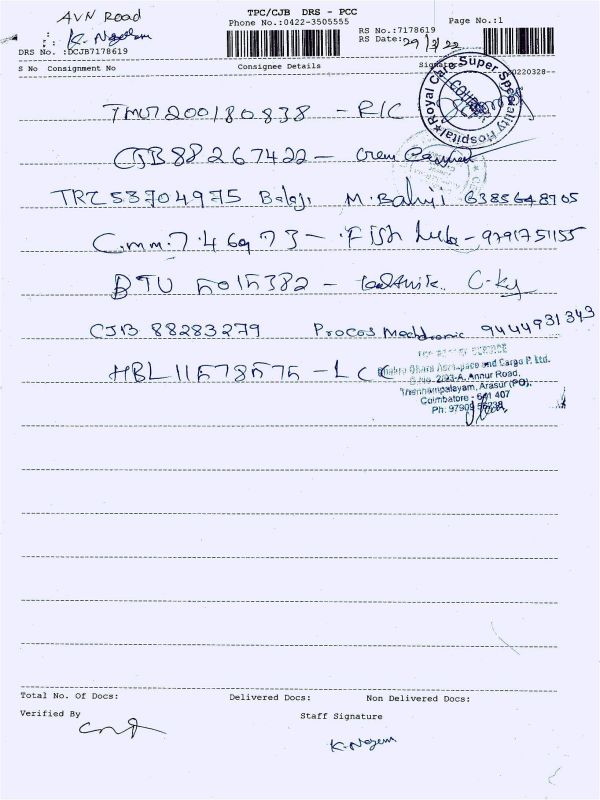 AVN Road
TPC/CJB DRS - PCC
Phone No.:0422-3505555
Page No.:1
RS No.:7178619
RS Date: 29/3/22
: K. Nagem
DRS No. :DCJB7178619
S No Consignment No Consignee Details Signature
20220328
Royal Care Super Speciality Hospital
TMT200180838 - RIC
CJB 88267422 -
TRZ 53704975 Balaji M. Balaji 6385648705
C.m.m.7.46973 - Fish - 9791751155
BTU 5015382 -
CJB 88283279 Procos Mechtronic 9444931343
HBL11578575 - LCC
Dhara Aerospace and Cargo P. Ltd.
S.No. 2/93-A, Annur Road,
Thennampalayam, Arasur (PO),
Coimbatore - 641 407
Ph: 97909 56738
Total No. Of Docs: Delivered Docs: Non Delivered Docs:
Verified By Staff Signature
K. Nagem